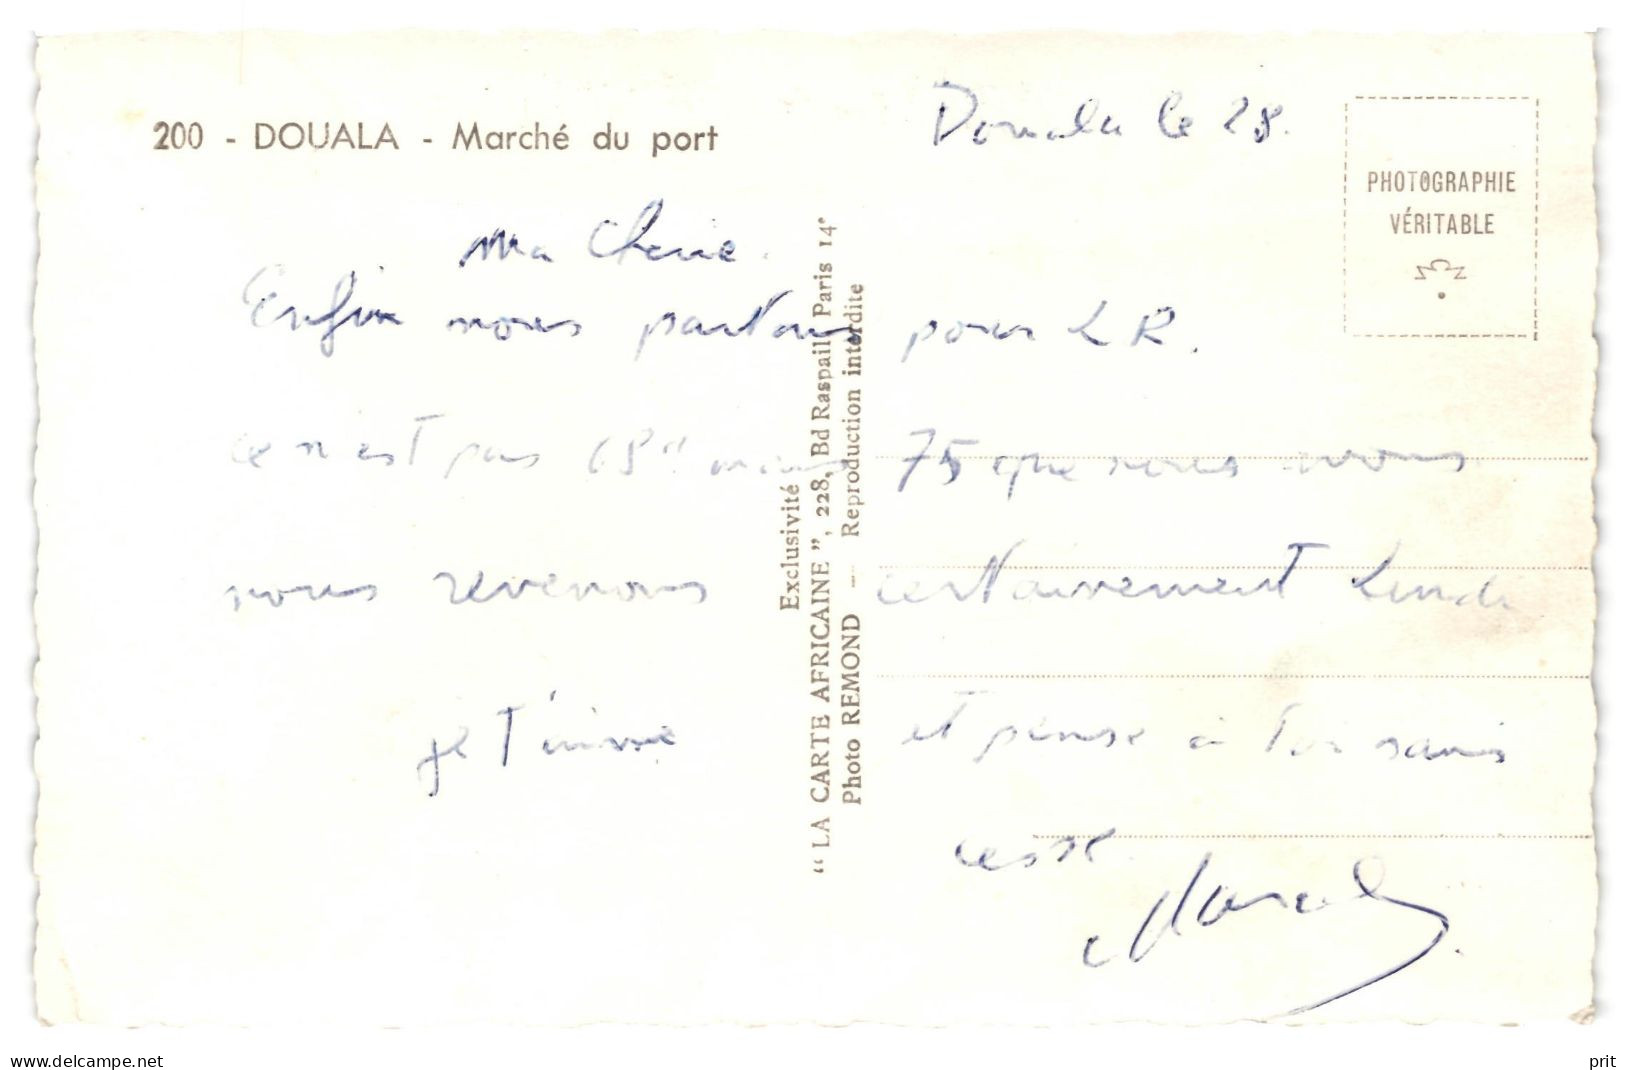 200 - DOUALA - Marché du port
Douala le 28.
PHOTOGRAPHIE
VÉRITABLE
Ma Cherie.
Enfin nous partons pour LR.
ce n'est pas 68 mais 75 que nous avons
nous revenons certainement Lundi
je t'aime et pense à toi sans
cesse.
Marcel
Exclusivité
“LA CARTE AFRICAINE”, 228, Bd Raspail, Paris 14e
Photo REMOND — Reproduction interdite
www.delcampe.net
prit